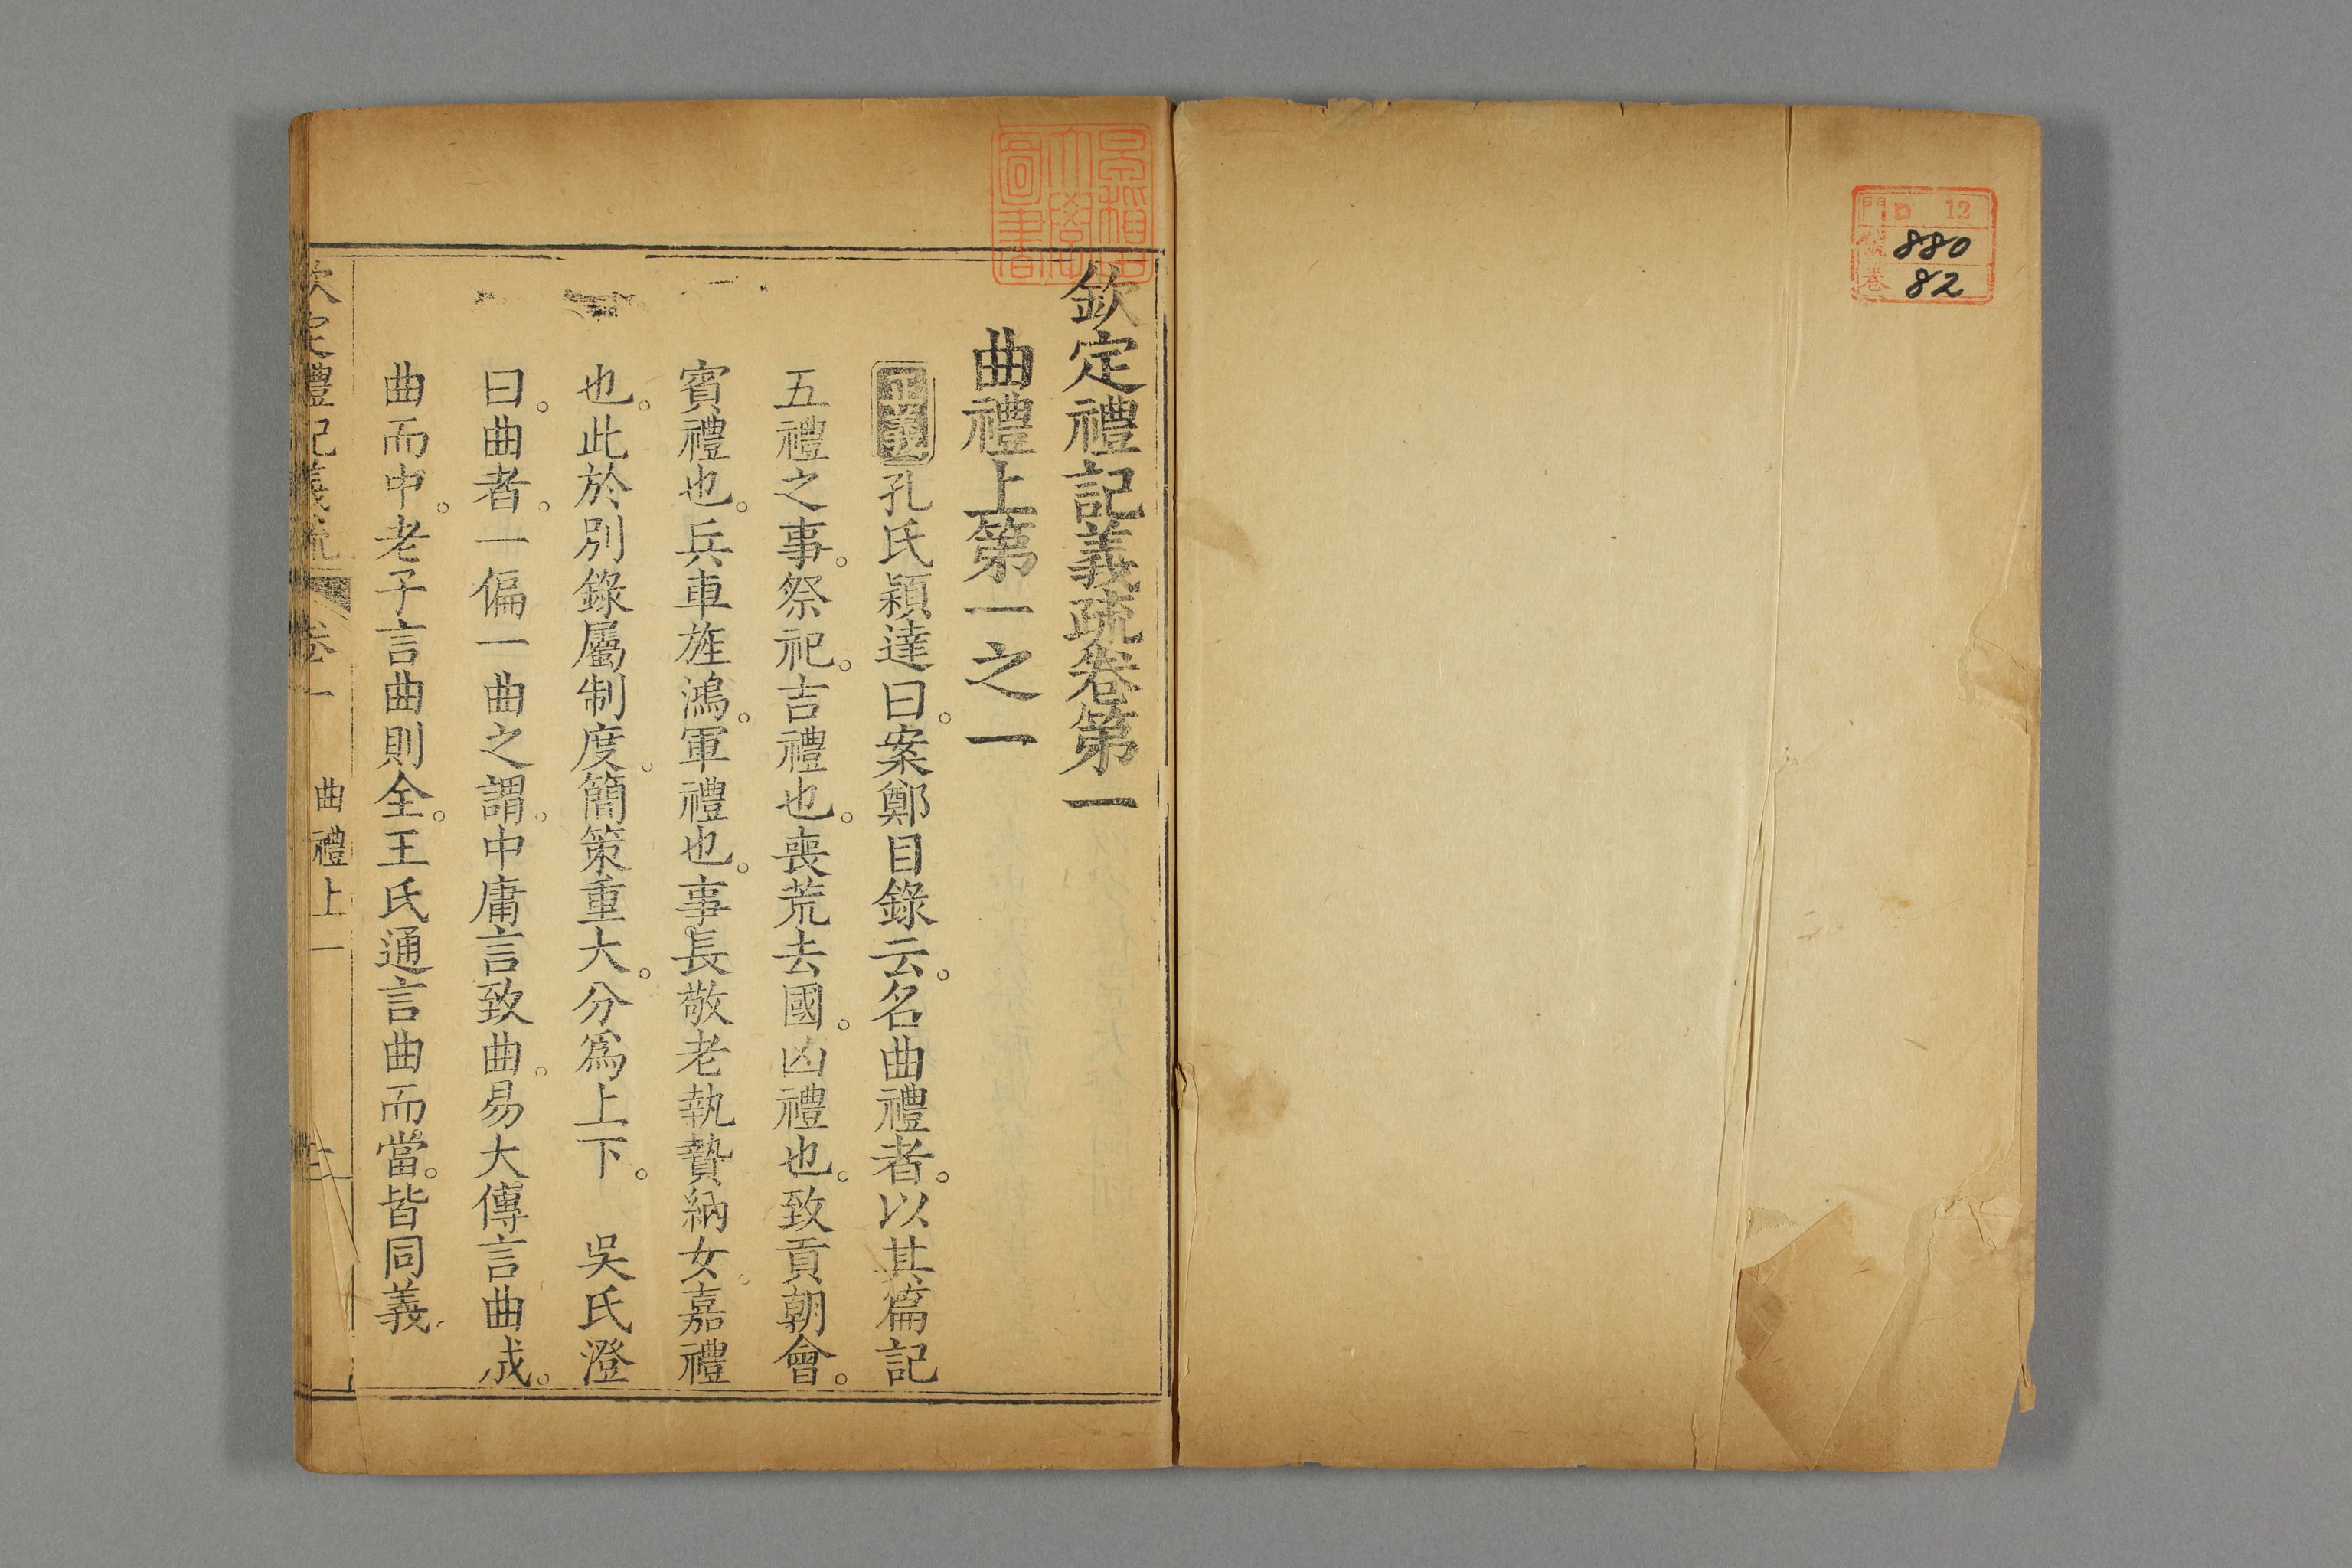 門 ロ 12
號 880
卷 82
早稲田大學圖書
欽定禮記義疏卷第一
曲禮上第一之一
正義孔氏穎達曰。案鄭目錄云。名曲禮者。以其篇記
五禮之事。祭祀。吉禮也。喪荒去國。凶禮也。致貢朝會。
賓禮也。兵車旌鴻。軍禮也。事長敬老執贄納女。嘉禮
也。此於別錄屬制度。簡策重大。分爲上下。 吳氏澄
曰。曲者。一偏一曲之謂。中庸言致曲。易大傳言曲成。
曲而中。老子言曲則全。王氏通言曲而當。皆同義。
欽定禮記義疏 卷一 曲禮上一